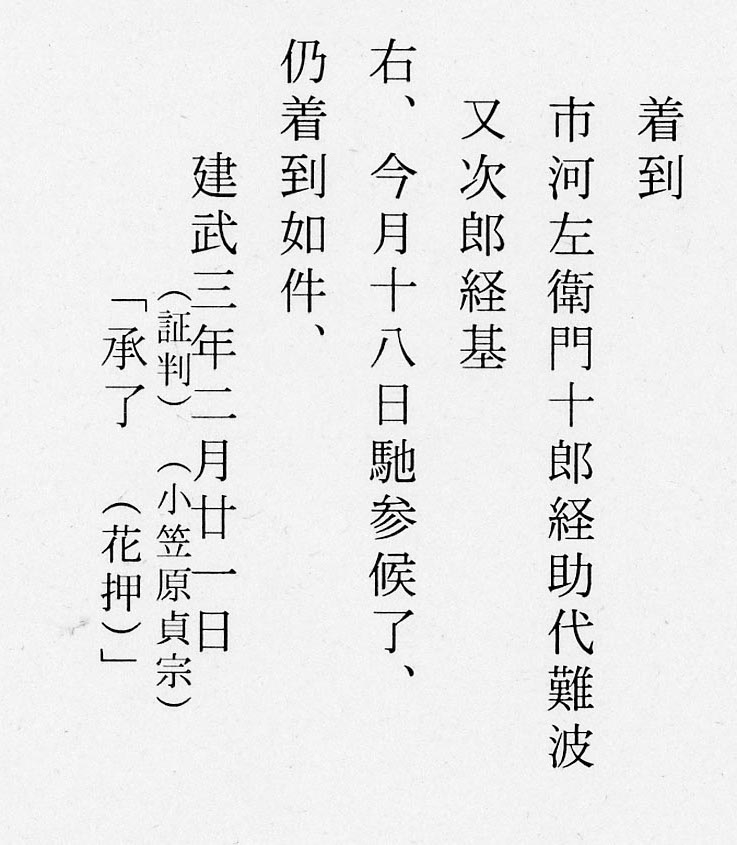 着到
市河左衛門十郎経助代難波
又次郎経基
右、今月十八日馳参候了、
仍着到如件、
建武三年二月廿一日
（証判）（小笠原貞宗）
「承了（花押）」